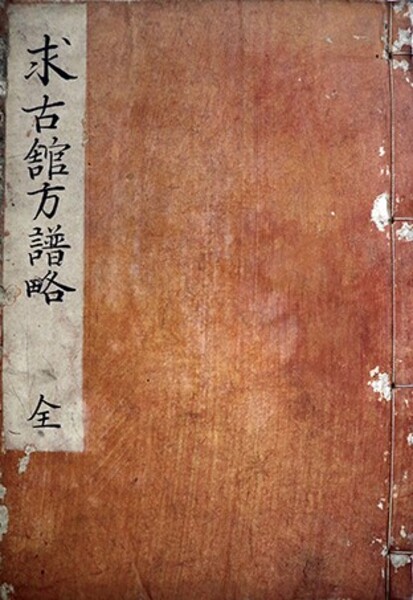 求古舘方譜略 全